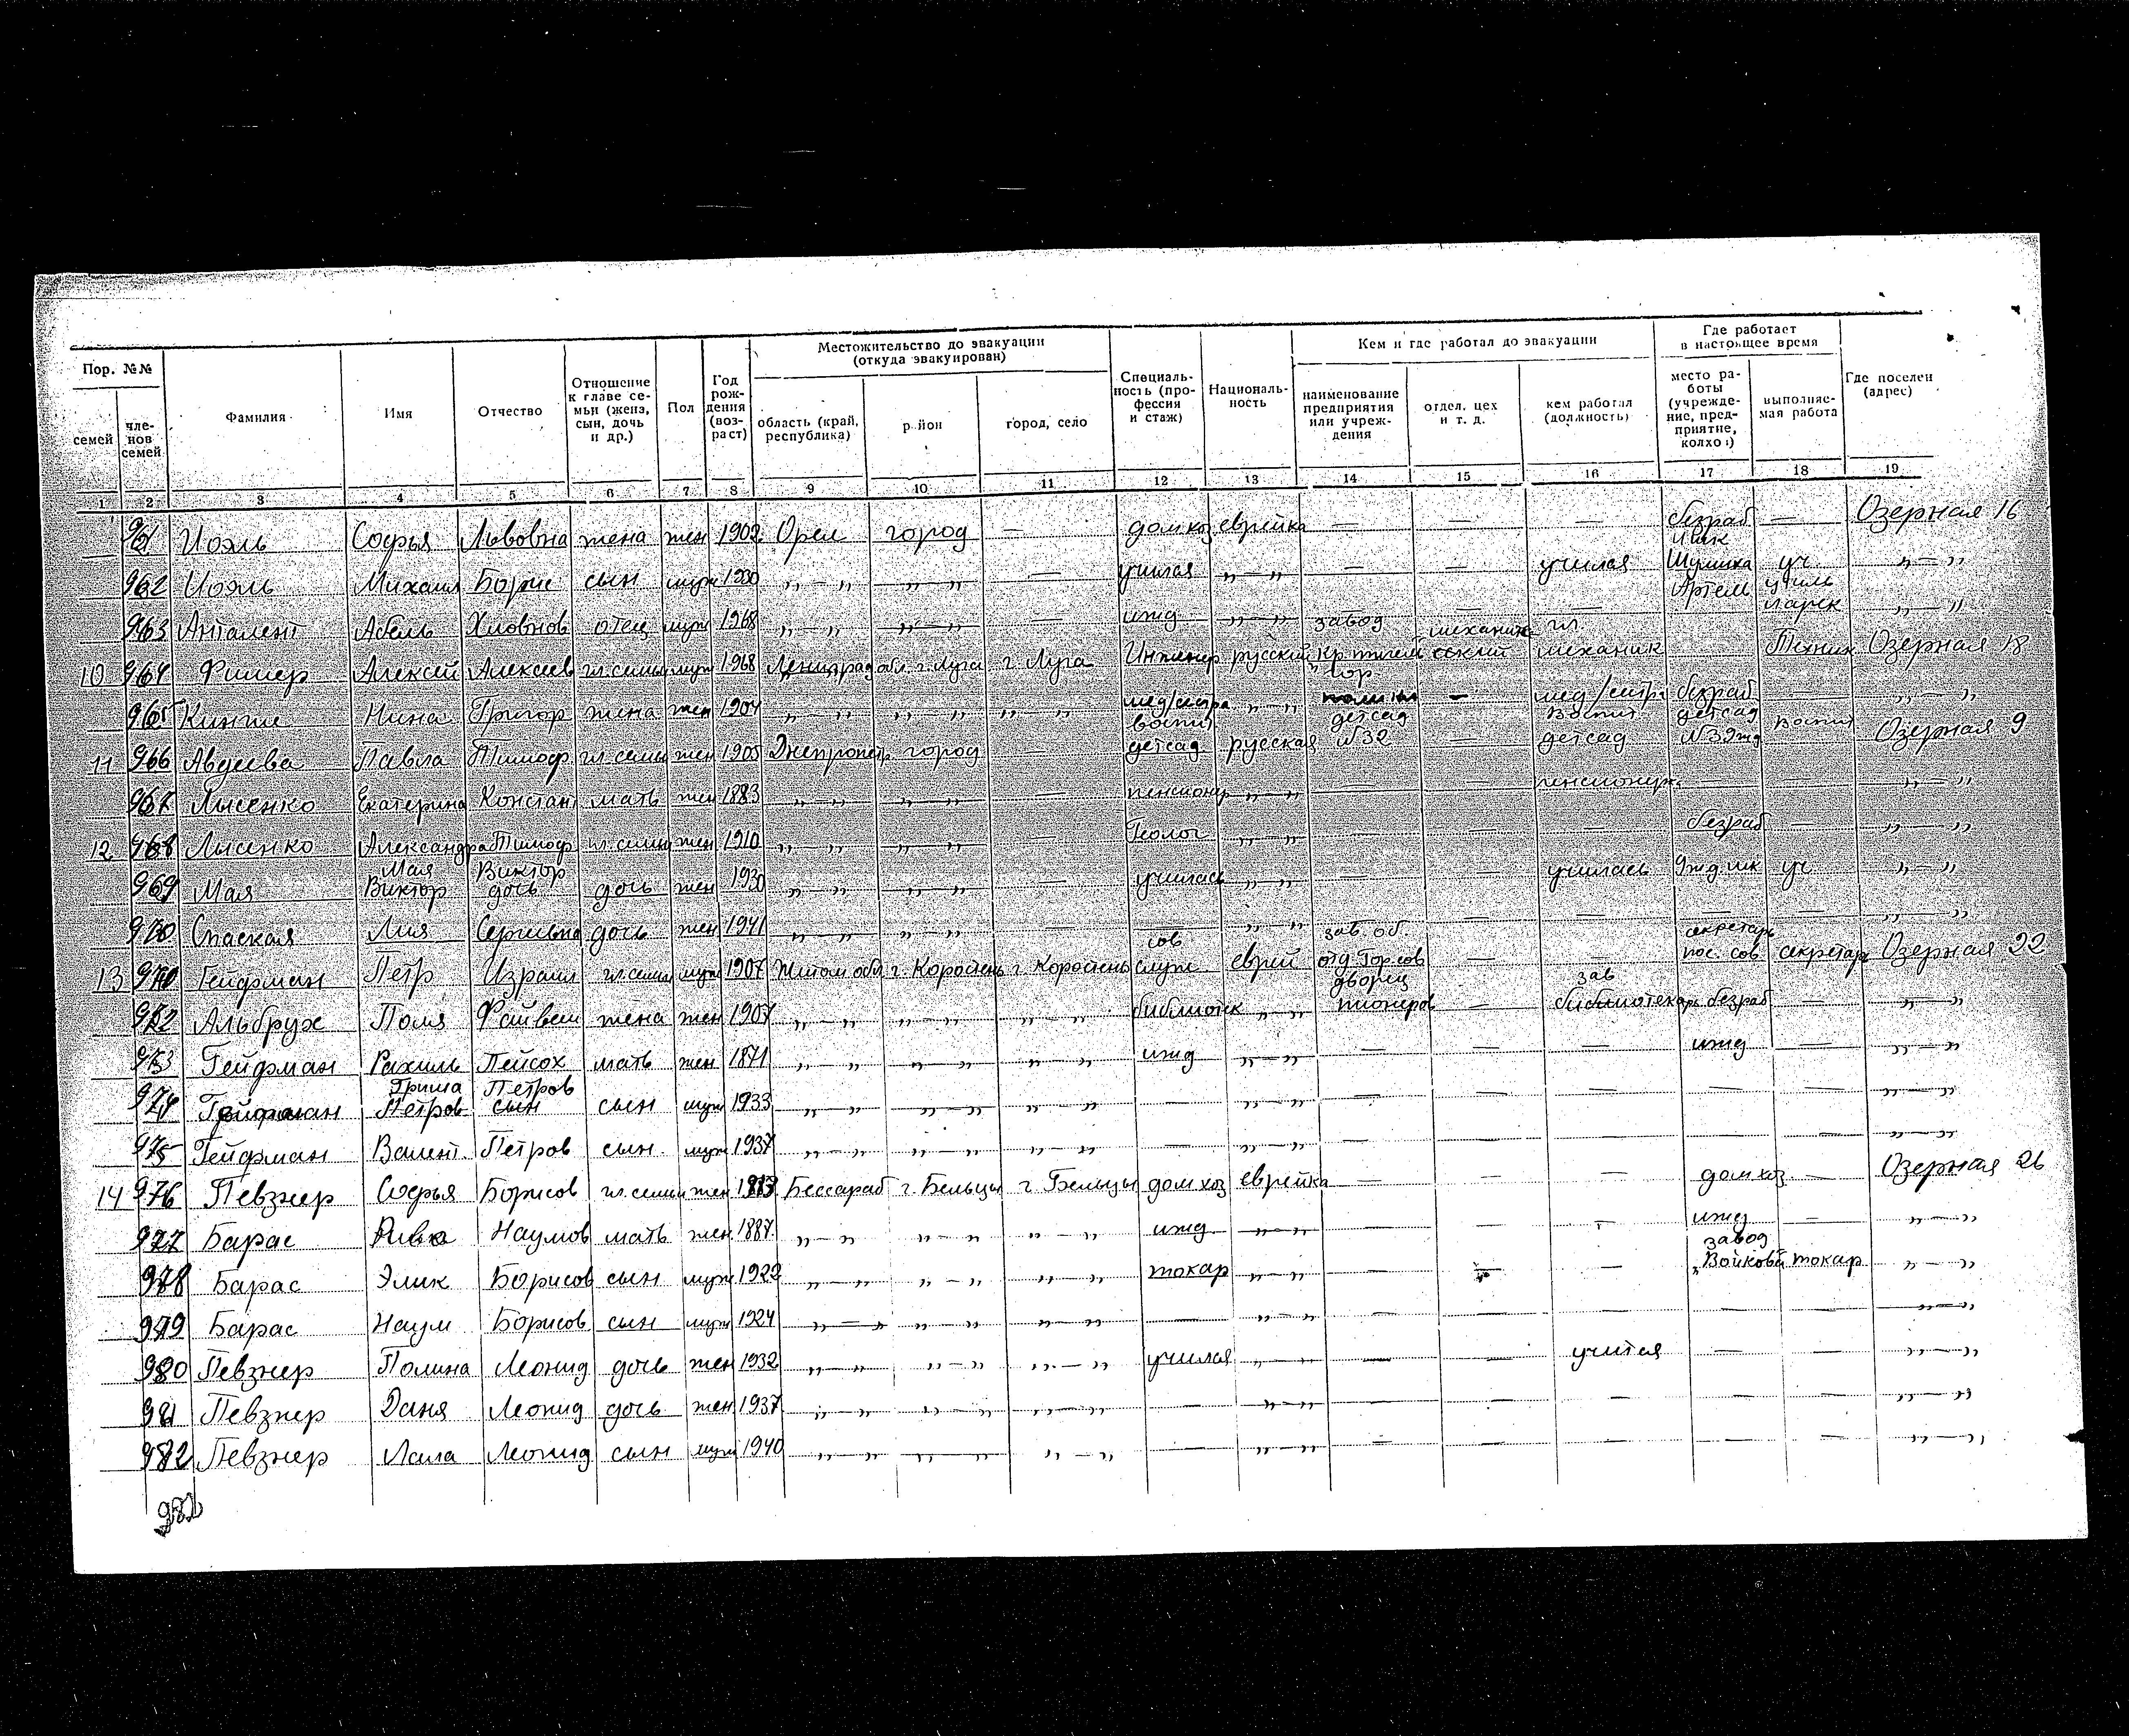 Пор. №№ Фамилия Имя Отчество Отношение к главе семьи (жена, сын, дочь и др.) Пол Год рождения (возраст) Местожительство до эвакуации (откуда эвакуирован) Специальность (профессия и стаж) Национальность Кем и где работал до эвакуации Где работает в настоящее время Где поселен (адрес)
семей членов семей область (край, республика) район город, село наименование предприятия или учреждения отдел, цех и т. д. кем работал (должность) место работы (учреждение, предприятие, колхоз) выполняемая работа
1 2 3 4 5 6 7 8 9 10 11 12 13 14 15 16 17 18 19
961 Иоэль Софья Львовна жена жен 1902 Орел город — дом хоз еврейка — — — безраб — Озерная 16
962 Иоэль Михаил Борис сын муж 1930 „—„ „—„ — училая „—„ — — училая уч „—„
963 Абель отец муж 1968 „—„ „—„ — ижд „—„ завод — — „—„
10 964 Фишер Алексей Алексеев гл. семьи муж 1968 Ленинград обл. г. Луга г. Луга Инженер русский гл. механик Техник Озерная 18
965 Нина Григор жена жен 1904 „—„ „—„ „—„ мед/сестра „—„ — мед/сестра безраб — „—„
11 966 Авдеева Павла Тимоф гл. семьи жен 1905 Днепропетр город — воспит детсад русская детсад №32 — воспит детсад детсад №39жд воспит Озерная 9
967 Лысенко Екатерина Констан мать жен 1883 „—„ „—„ — пенсионер „—„ — — пенсионерк — — „—„
12 968 Лысенко Александра Тимоф гл. семьи жен 1910 „—„ „—„ — Геолог „—„ — — — безраб — „—„
969 Мая Мая Виктор Виктор дочь дочь жен 1930 „—„ „—„ — училась „—„ — — училась уч „—„
970 Спаская Лия Сергеевна дочь жен 1941 „—„ „—„ — — „ „ — — — — „—„
13 971 Гейфман Петр Израил гл. семьи муж 1907 Житом обл г. Коростень г. Коростень сов служ еврей зав. об. отд Горсов — — секретарь пос. сов секретарь Озерная 22
972 Альбрух Поля Файвеш жена жен 1907 „—„ „—„ „—„ библиотек „—„ дворец пионеров — зав библиотекарь безраб — „—„
973 Гейфман Рахиль Пейсох мать жен 1871 „—„ „—„ „—„ ижд „—„ — — — ижд — „—„
974 Гейфман Гриша Петров Петров сын сын муж 1933 „—„ „—„ „—„ — „—„ — — — — — „—„
975 Гейфман Валент. Петров сын муж 1937 „—„ „—„ „—„ — „—„ — — — — — „—„
14 976 Певзнер Софья Борисов гл. семьи жен Бессараб г. Бельцы г. Бельцы дом хоз еврейка — — — дом хоз — Озерная 26
977 Барас Ривка Наумов мать жен 1887 „—„ „—„ „—„ ижд „—„ — — — ижд — „—„
978 Барас Элик Борисов сын муж 1922 „—„ „—„ „—„ токар „—„ — — — завод „Войкова" токар „—„
979 Барас Наум Борисов сын муж 1924 „—„ „—„ „—„ — „—„ — — — — — „—„
980 Певзнер Полина Леонид дочь жен 1932 „—„ „—„ „—„ училая „—„ — — учитая — — „—„
981 Певзнер Даня Леонид дочь жен 1937 „—„ „—„ „—„ — „—„ — — — — — „—„
982 Певзнер Леонид сын муж 1940 „—„ „—„ „—„ — „—„ — — — — — „—„
982